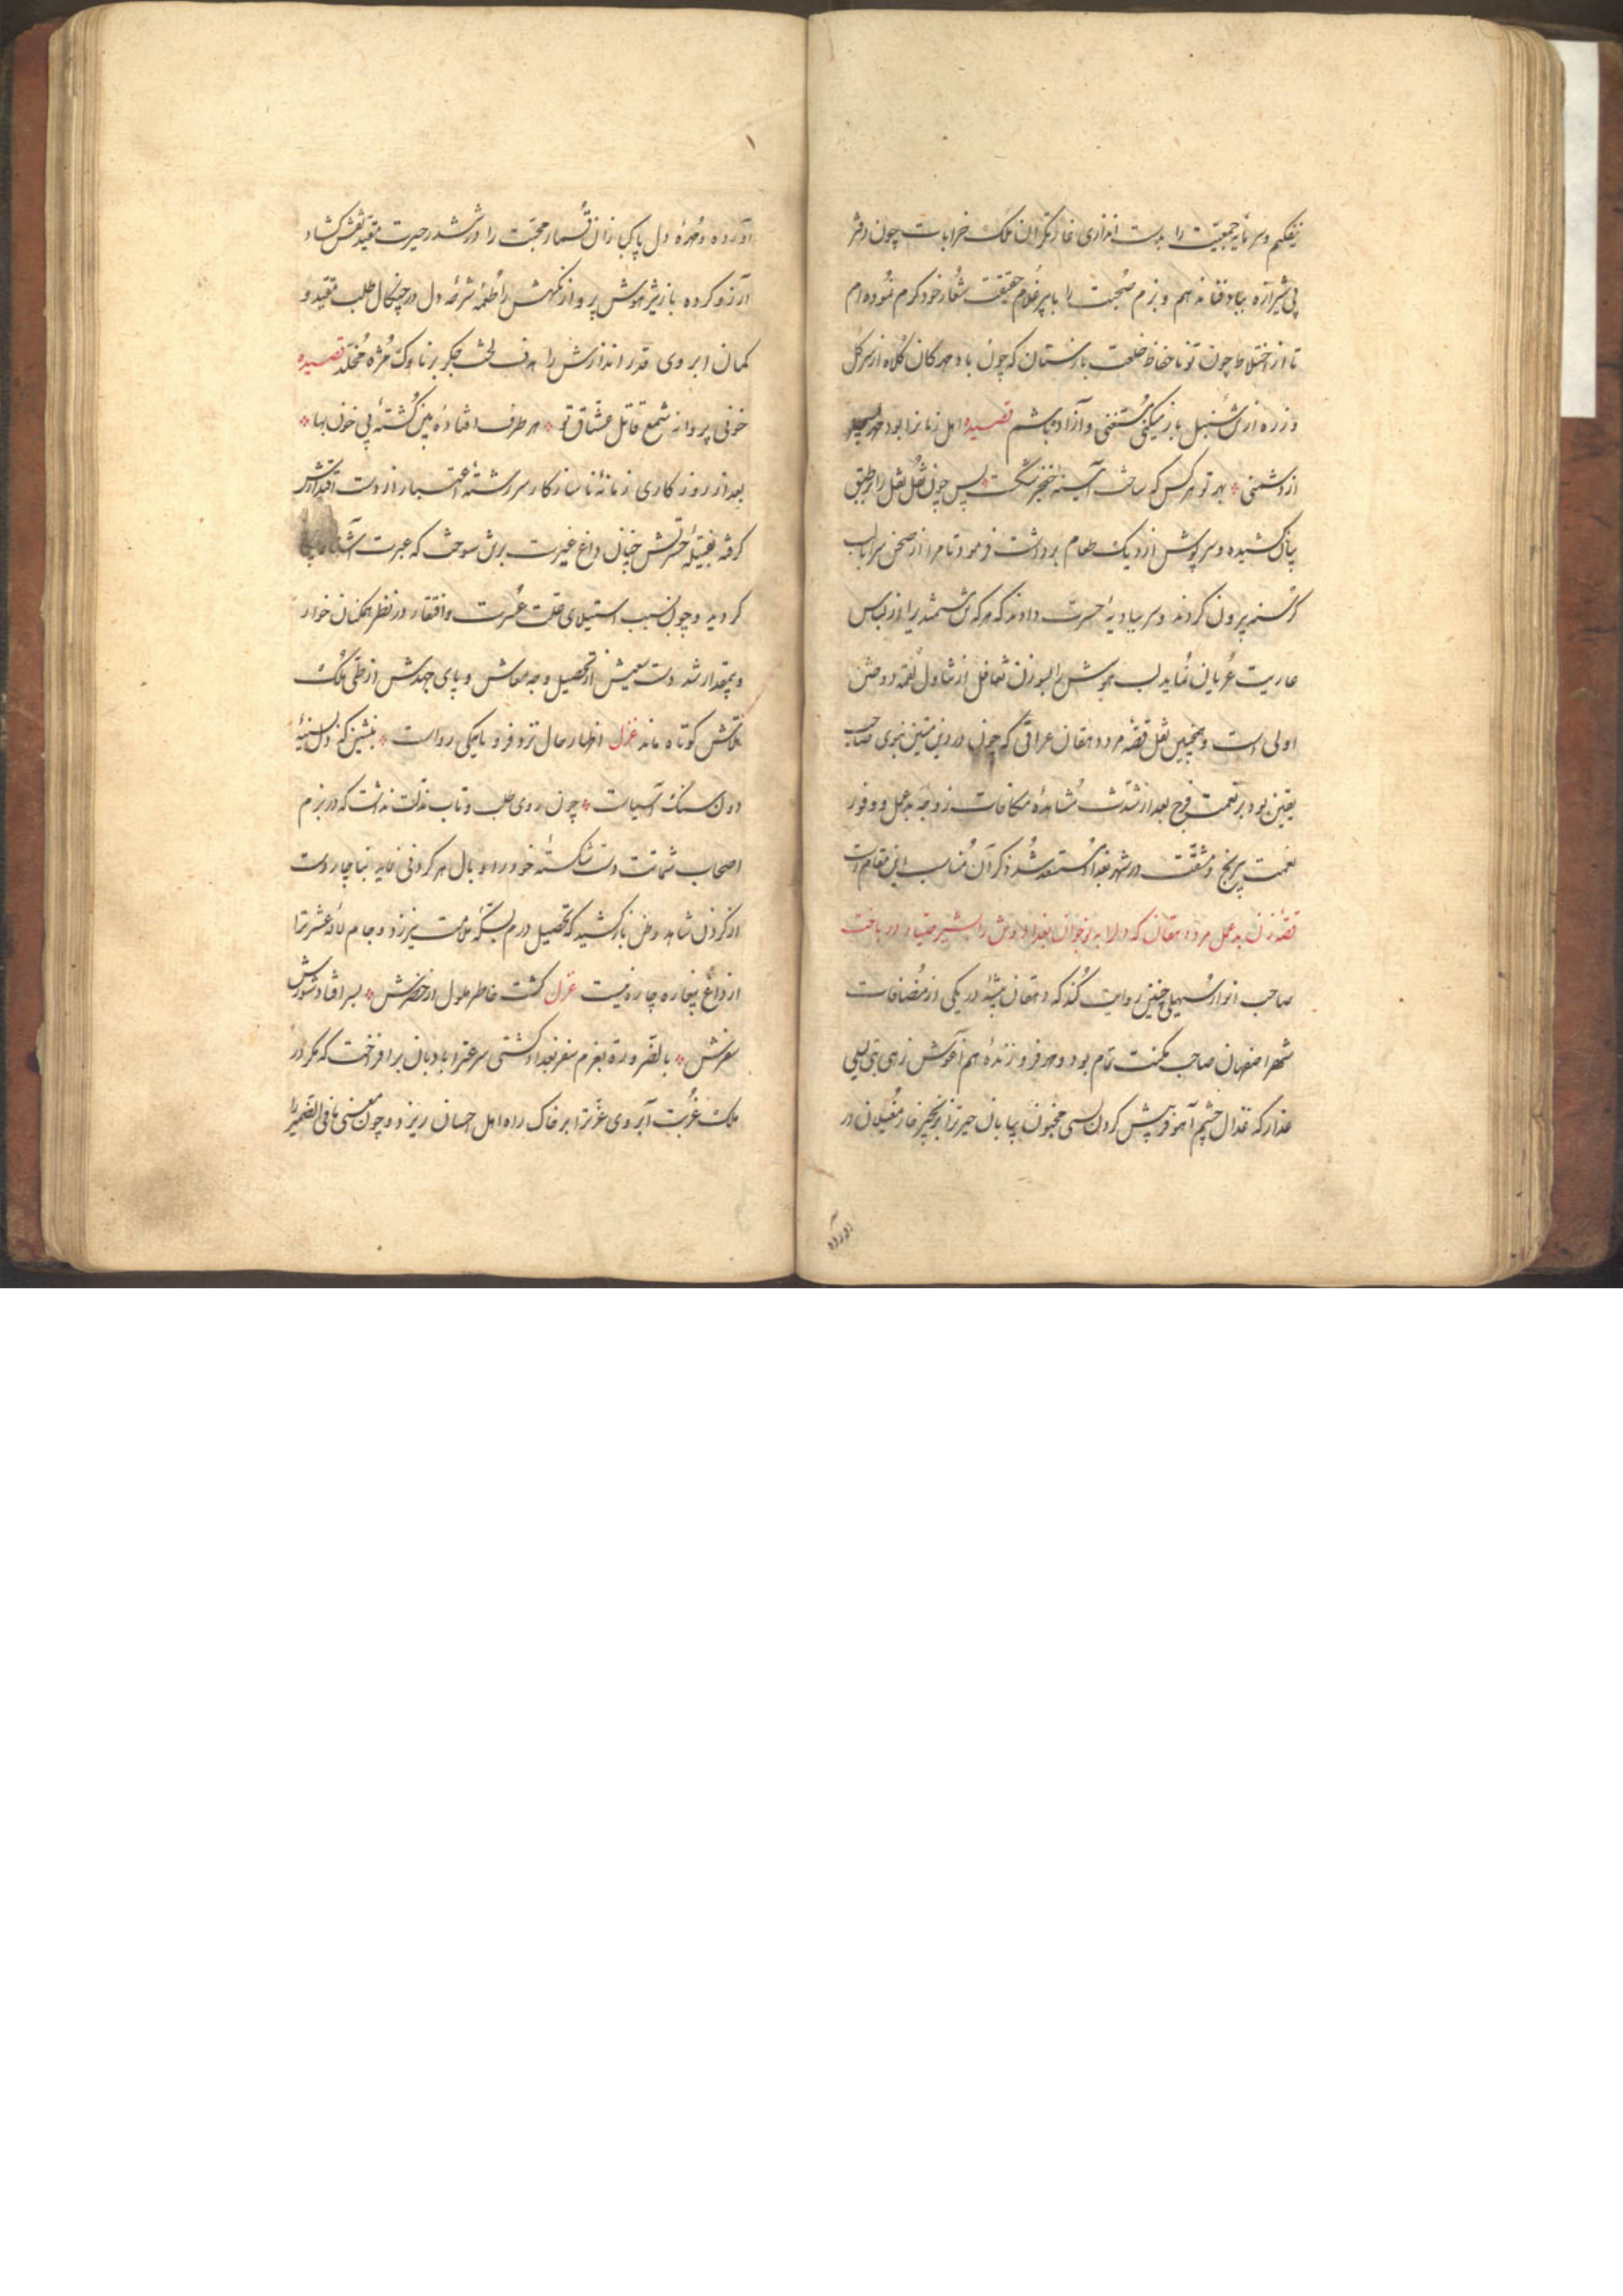 نیفکنم و سرمایه جمعیت را بدست اندازی غارتگران ملک خرابات چون دفتر
بی شیرازه بباد فنا ندهم و بزم صحبت را با پیر غلام حقیقت شعار خود گرم نموده ام
تا از اختلاط چون تو ناحفاظ خلعت بازستان که چون باد مهرکان کلاه از سر گل
و زره از تن سنبل باز میکنی مستغنی و آزاد باشم قصیده اهل زمانرا بود
از دشمنی بهر تو هر کس که ساخت آینه خنجر شکست پس چون نقل را بر طبق
بیان کشیده و سرپوش از دیک طعام برداشت فرمود تا مرا از صحن سرا باب
گرسنه بیرون کردند و سر ببادیه حسرت دادند که هر که تن شمشیر را از لباس
عاریت عریان نماید لب هوش را بسوزن تغافل از تناول لقمه دوختن
اولی است و همچنین نقل قصه مرد دهقان عراقی که چون در دین متین نبوی صاحب
یقین بود بر نعمت فرح بعد از شدت مشاهده مکافات زوجه بدعمل و وفور
نعمت بی رنج و مشقت در شهر بغداد مستعد شد ذکر آن مناسب این مقام است
قصه زن بدعمل مرد دهقان که دل را به نوجوان بغدادی وش را شیر صیاد در باخت
صاحب انوار سهیلی چنین روایت کند که دهقان پیشه در یکی از مضافات
شهر اصفهان صاحب مکنت تمام بود و مهر فروزنده هم آغوش زهی بتی لیلی
عذار که غزال چشم آهو فریبش گردن بسی مجنون بیابان حیرترا بزنجیر خار مغیلان در
آورده
آورده و مهره دل پاکبازان قمار محبت را در ششدر حیرت مقید نقش گشاد
آرزو کرده باز تیز هوش پرواز نگهش را طعمه شرحه دل در چنگال طلب مقید و
کمان ابروی قدر اندازش را هدف لخت جگر بر ناوک مژه مخلد قصیده
خونی پروانه شمع قاتل عشاق تو هر طرف افتاده بین کشته بی خون بها
بعد از روزگاری زمانه ناسازگار سررشته اعتبار از دست اقتدارش
گرفته بفتیله حسرتش چنان داغ غیرت برتن سوخت که عبرت
گردید و چون بسبب استیلای قلت عسرت و افتقار در نظر همکنان خوار
و بیمقدار شد دست سعیش از تحصیل وجه معاش و پای جهدش از طی ملک
تلاش کوتاه ماند غزل اظهار حال نزد فرومایکی رواست بنشین که دل بسینه
دون سنک آسیاست چون روی طلب و تاب مذلت نداشت که در بزم
اصحاب شماتت دست شکسته خود را وبال هر گردنی نماید بناچار دست
از گردن شاهد وطن باز کشید که تحصیل درم بسنکه ملامت نیرزد و جام لاله عشرترا
از داغ پیغاره چاره نیست غزل گشت خاطر ملول از حضرش بسر افتاد شورش
سفرش بالضروره بعزم سفر بغداد کشتی سرعترا بادبان برافراخت که مگر در
ملک غربت آبروی عزترا بر خاک راه اهل جهان ریزد و چون معنی مافی الضمیر را